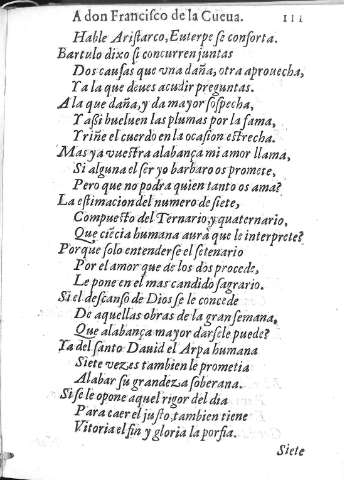 A don Francisco de la Cueua. 111
Hable Aristarco, Euterpe se conforta.
Bartulo dixo si concurren juntas
Dos causas que vna daña, otra aprouecha,
Ya la que deues acudir preguntas.
A la que daña, y da mayor sospecha,
Y assi bueluen las plumas por la fama,
Y riñe el cuerdo en la ocasion estrecha.
Mas ya vuestra alabança mi amor llama,
Si alguna el ser yo barbaro os promete,
Pero que no podra quien tanto os ama?
La estimacion del numero de siete,
Compuesto del Ternario, y quaternario,
Que ciẽcia humana aurà que le interprete?
Porque solo entenderse el setenario
Por el amor que de los dos procede,
Le pone en el mas candido sagrario.
Si el descanso de Dios se le concede
De aquellas obras de la gran semana,
Que alabança mayor darsele puede?
Ya del santo Dauid el Arpa humana
Siete vezes tambien le prometia
Alabar su grandeza soberana.
Si se le opone aquel rigor del dia
Para caer el justo, tambien tiene
Vitoria el fin y gloria la porfia.
Siete